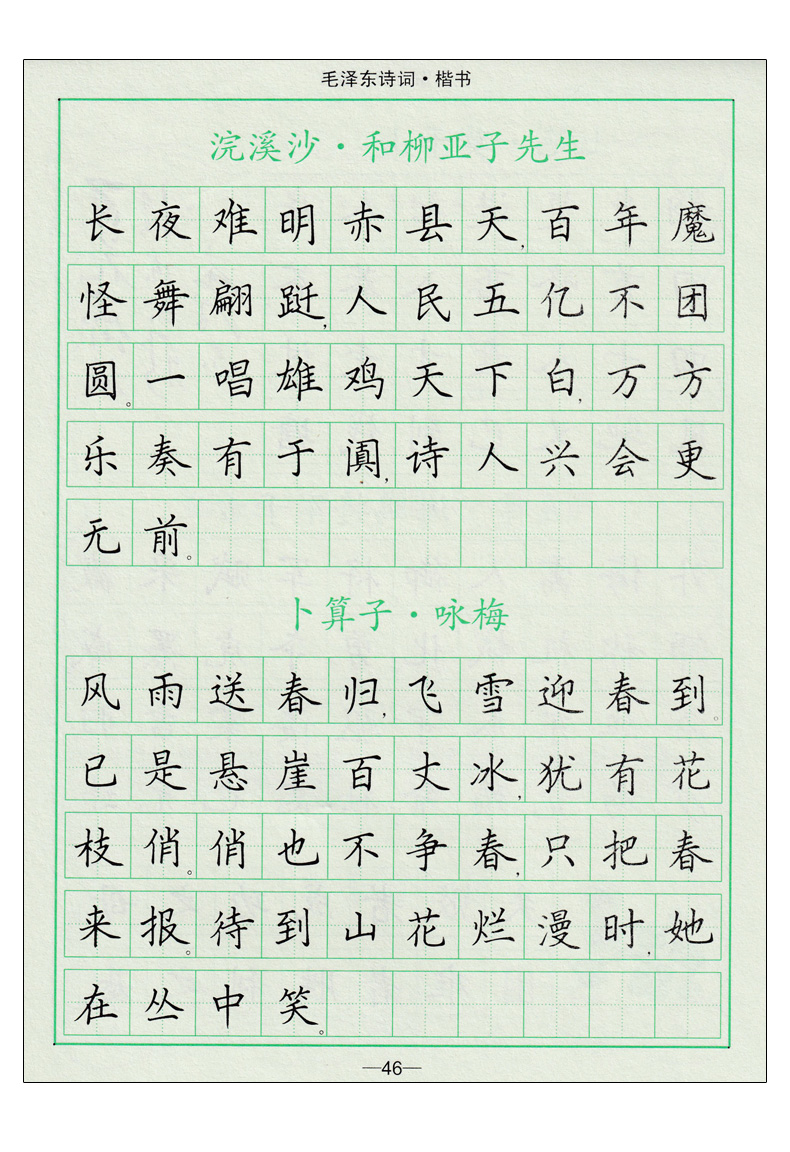 毛泽东诗词·楷书
浣溪沙·和柳亚子先生
长夜难明赤县天,百年魔
怪舞翩跹,人民五亿不团
圆。一唱雄鸡天下白,万方
乐奏有于阗,诗人兴会更
无前。
卜算子·咏梅
风雨送春归,飞雪迎春到。
已是悬崖百丈冰,犹有花
枝俏。俏也不争春,只把春
来报。待到山花烂漫时,她
在丛中笑。
—46—